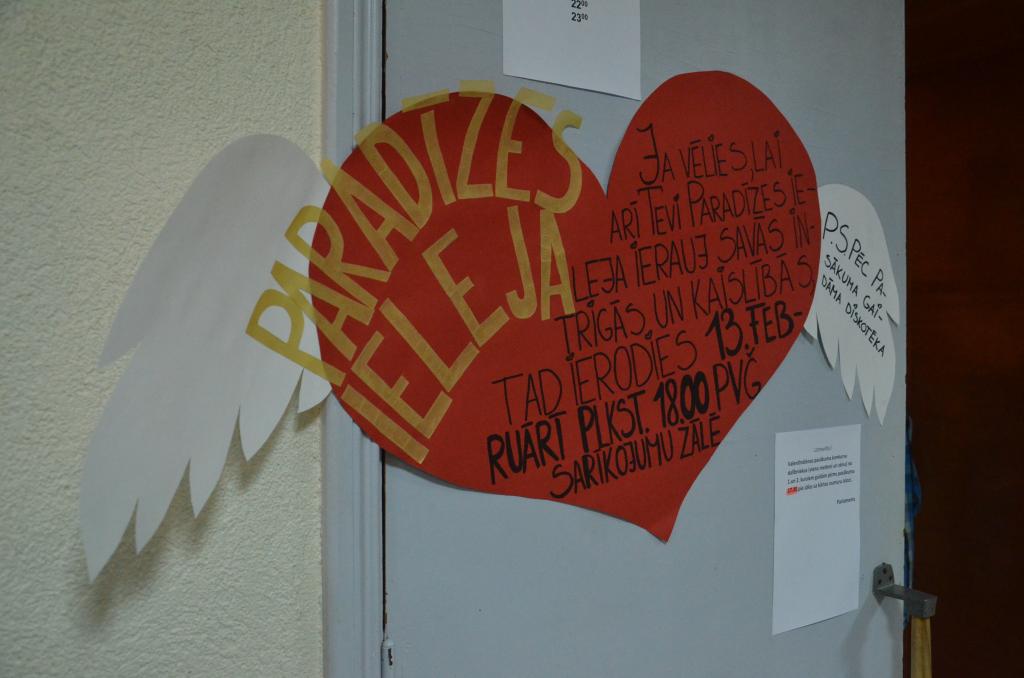 22⁰⁰
23⁰⁰
PARADĪZES
IELEJA
JA VĒLIES, LAI
ARĪ TEVI PARADĪZES IE-
LEJA IERAUJ SAVĀS IN-
TRIGĀS UN KAISLĪBĀS
TAD IERODIES 13. FEB-
RUĀRĪ PLKST. 18.00 PVĢ
SARĪKOJUMU ZĀLĒ
P.S. PĒC PA-
SĀKUMA GAI-
DĀMA DISKOTĒKA
Parlaments